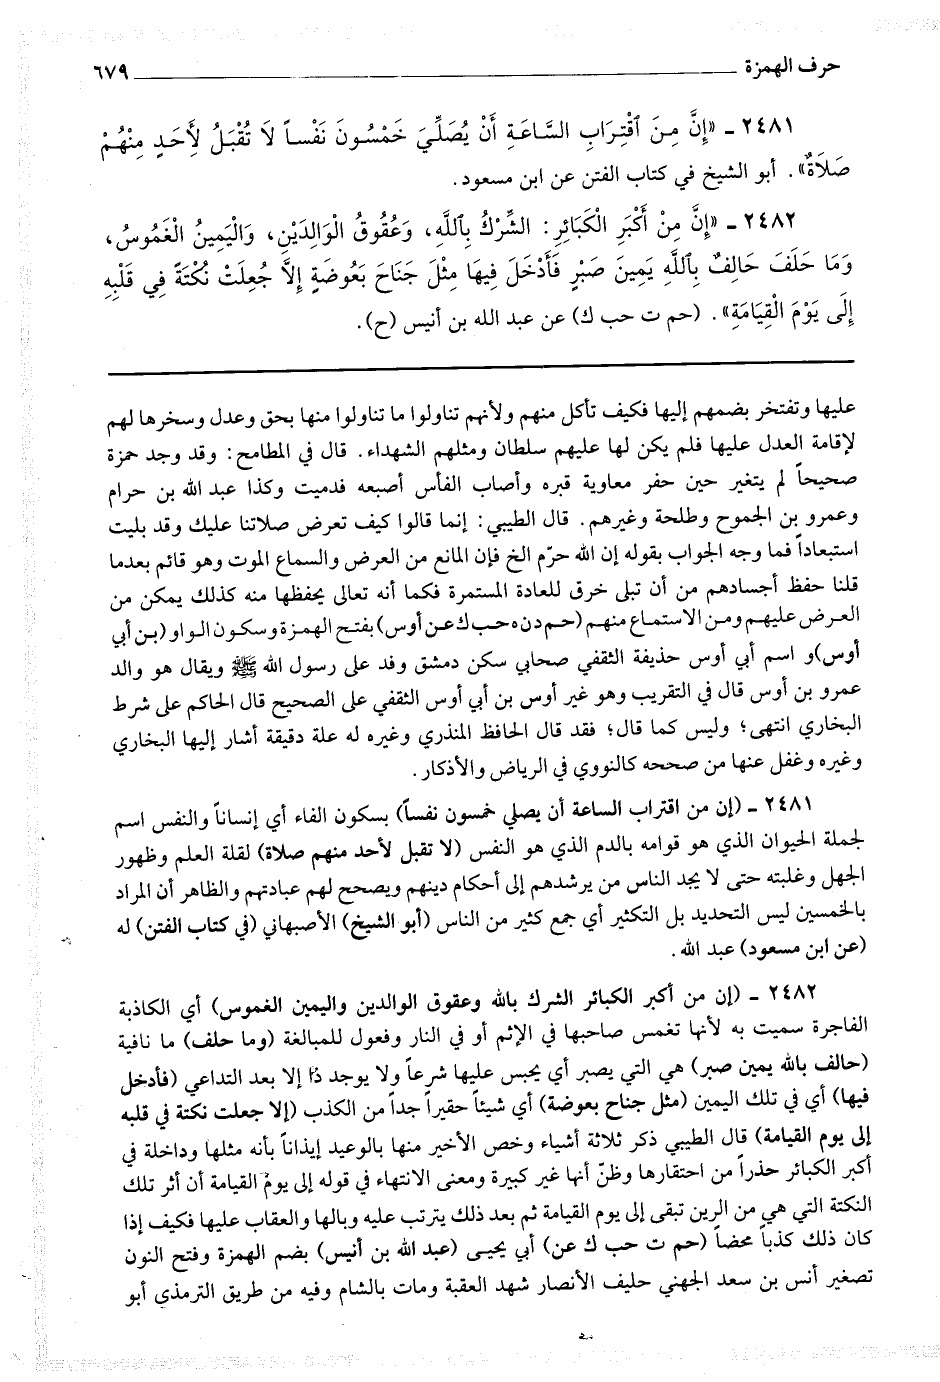 حرف الهمزة ٦٧٩
٢٤٨١ ـ «إِنَّ مِنَ ٱقْتِرَابِ السَّاعَةِ أَنْ يُصَلِّيَ خَمْسُونَ نَفْساً لَا تُقْبَلُ لِأَحَدٍ مِنْهُمْ
صَلَاةٌ». أبو الشيخ في كتاب الفتن عن ابن مسعود.
٢٤٨٢ ـ «إِنَّ مِنْ أَكْبَرِ الْكَبَائِرِ: الشِّرْكُ بِٱللَّهِ، وَعُقُوقُ الْوَالِدَيْنِ، وَالْيَمِينُ الْغَمُوسُ،
وَمَا حَلَفَ حَالِفٌ بِٱللَّهِ يَمِينَ صَبْرٍ فَأَدْخَلَ فِيهَا مِثْلَ جَنَاحَ بَعُوضَةٍ إِلَّا جُعِلَتْ نُكْتَةً فِي قَلْبِهِ
إِلَى يَوْمَ الْقِيَامَةِ». (حم ت حب ك) عن عبد الله بن أنيس (ح).
عليها وتفتخر بضمهم إليها فكيف تأكل منهم ولأنهم تناولوا ما تناولوا منها بحق وعدل وسخرها لهم
لإقامة العدل عليها فلم يكن لها عليهم سلطان ومثلهم الشهداء. قال في المطامح: وقد وجد حمزة
صحيحاً لم يتغير حين حفر معاوية قبره وأصاب الفأس أصبعه فدميت وكذا عبد الله بن حرام
وعمرو بن الجموح وطلحة وغيرهم. قال الطيبي: إنما قالوا كيف تعرض صلاتنا عليك وقد بليت
استبعاداً فما وجه الجواب بقوله إن الله حرّم الخ فإن المانع من العرض والسماع الموت وهو قائم بعدما
قلنا حفظ أجسادهم من أن تبلى خرق للعادة المستمرة فكما أنه تعالى يحفظها منه كذلك يمكن من
العرض عليهم ومن الاستماع منهم (حم د ن ه حب ك عن أوس) بفتح الهمزة وسكون الواو (بن أبي
أوس) و اسم أبي أوس حذيفة الثقفي صحابي سكن دمشق وفد على رسول الله ﷺ ويقال هو والد
عمرو بن أوس قال في التقريب وهو غير أوس بن أبي أوس الثقفي على الصحيح قال الحاكم على شرط
البخاري انتهى؛ وليس كما قال؛ فقد قال الحافظ المنذري وغيره له علة دقيقة أشار إليها البخاري
وغيره وغفل عنها من صححه كالنووي في الرياض والأذكار.
٢٤٨١ ـ (إن من اقتراب الساعة أن يصلي خمسون نفساً) بسكون الفاء أي إنساناً والنفس اسم
لجملة الحيوان الذي هو قوامه بالدم الذي هو النفس (لا تقبل لأحد منهم صلاة) لقلة العلم وظهور
الجهل وغلبته حتى لا يجد الناس من يرشدهم إلى أحكام دينهم ويصحح لهم عبادتهم والظاهر أن المراد
بالخمسين ليس التحديد بل التكثير أي جمع كثير من الناس (أبو الشيخ) الأصبهاني (في كتاب الفتن) له
(عن ابن مسعود) عبد الله.
٢٤٨٢ ـ (إن من أكبر الكبائر الشرك بالله وعقوق الوالدين واليمين الغموس) أي الكاذبة
الفاجرة سميت به لأنها تغمس صاحبها في الإثم أو في النار وفعول للمبالغة (وما حلف) ما نافية
(حالف بالله يمين صبر) هي التي يصبر أي يحبس عليها شرعاً ولا يوجد ذا إلا بعد التداعي (فأدخل
فيها) أي في تلك اليمين (مثل جناح بعوضة) أي شيئاً حقيراً جداً من الكذب (إلا جعلت نكتة في قلبه
إلى يوم القيامة) قال الطيبي ذكر ثلاثة أشياء وخص الأخير منها بالوعيد إيذاناً بأنه مثلها وداخلة في
أكبر الكبائر حذراً من احتقارها وظنّ أنها غير كبيرة ومعنى الانتهاء في قوله إلى يوم القيامة أن أثر تلك
النكتة التي هي من الرين تبقى إلى يوم القيامة ثم بعد ذلك يترتب عليه وبالها والعقاب عليها فكيف إذا
كان ذلك كذباً محضاً (حم ت حب ك عن) أبي يحيى (عبد الله بن أنيس) بضم الهمزة وفتح النون
تصغير أنس بن سعد الجهني حليف الأنصار شهد العقبة ومات بالشام وفيه من طريق الترمذي أبو